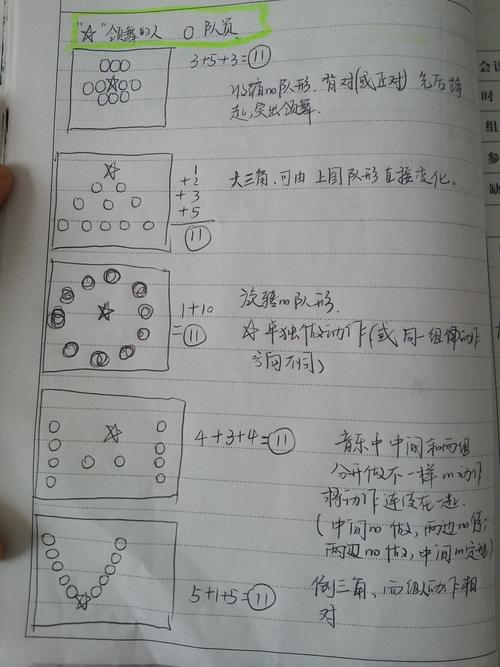 "☆"领舞的人 ○队员.
3+5+3=⑪
收缩的队形.背对(或正对)先后蹲
起,突出领舞.
1
+2
+3
+5
⑪
大三角.可由上图队形直接变化.
1+10
=⑪
旋转的队形.
☆单独做动作(或同一组停动作
方向不同)
4+3+4=⑪
音乐中中间和两组
分开做不一样的动作
将动作连接在一起.
(中间的做,两边的停;
两边的做,中间的定型)
5+1+5=⑪
倒三角、两组动作相
对
会议
时
组
参
缺